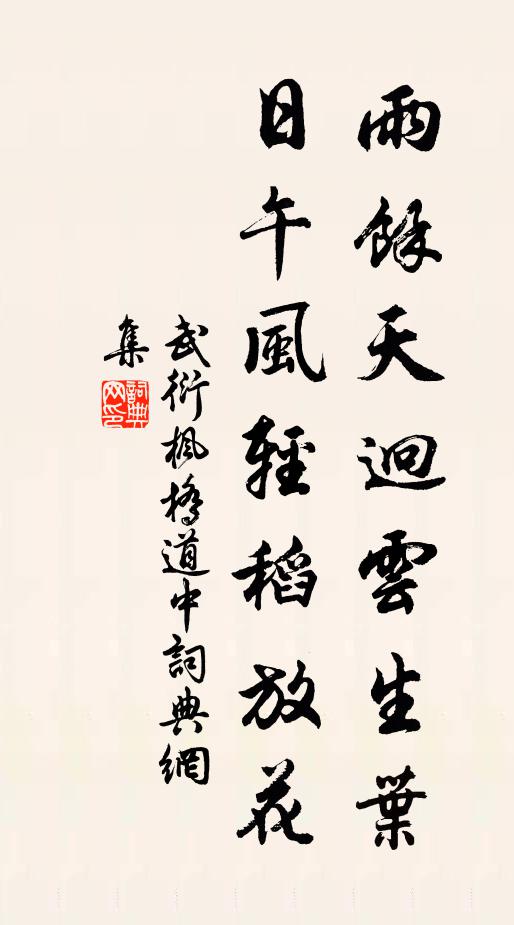 雨餘天迥雲生葉
日午風輕稻放花
武衍楓橋道中詞典網
集
詞典
网印